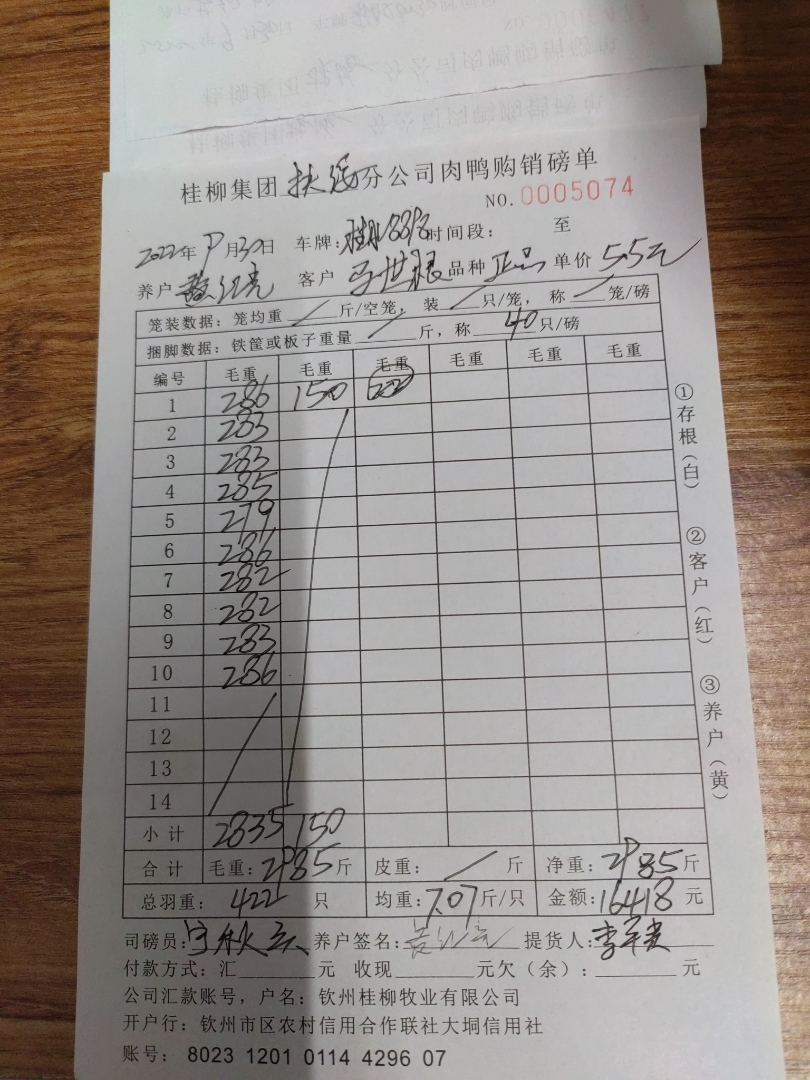 桂柳集团 扶绥 分公司肉鸭购销磅单
NO. 0005074
2022年9月30日 车牌: 时间段: 至
养户 黄红亮 客户 马世银 品种 正品 单价 5.5元
笼装数据: 笼均重 / 斤/空笼, 装 / 只/笼, 称 / 笼/磅
捆脚数据: 铁筐或板子重量 / 斤, 称 40 只/磅
编号 毛重 毛重 毛重 毛重 毛重 毛重
1 286 150
2 283
3 283
4 285
5 279
6 286
7 282
8 282
9 283
10 286
11
12
13
14
小计 2835 150
合计 毛重: 2985 斤 皮重: / 斤 净重: 2985 斤
总羽重: 422 只 均重: 7.07 斤/只 金额: 16418 元
司磅员: 养户签名: 黄红亮 提货人:
付款方式: 汇 元 收现 元欠(余): 元
公司汇款账号, 户名: 钦州桂柳牧业有限公司
开户行: 钦州市区农村信用合作联社大垌信用社
账号: 8023 1201 0114 4296 07
①存根(白)
②客户(红)
③养户(黄)